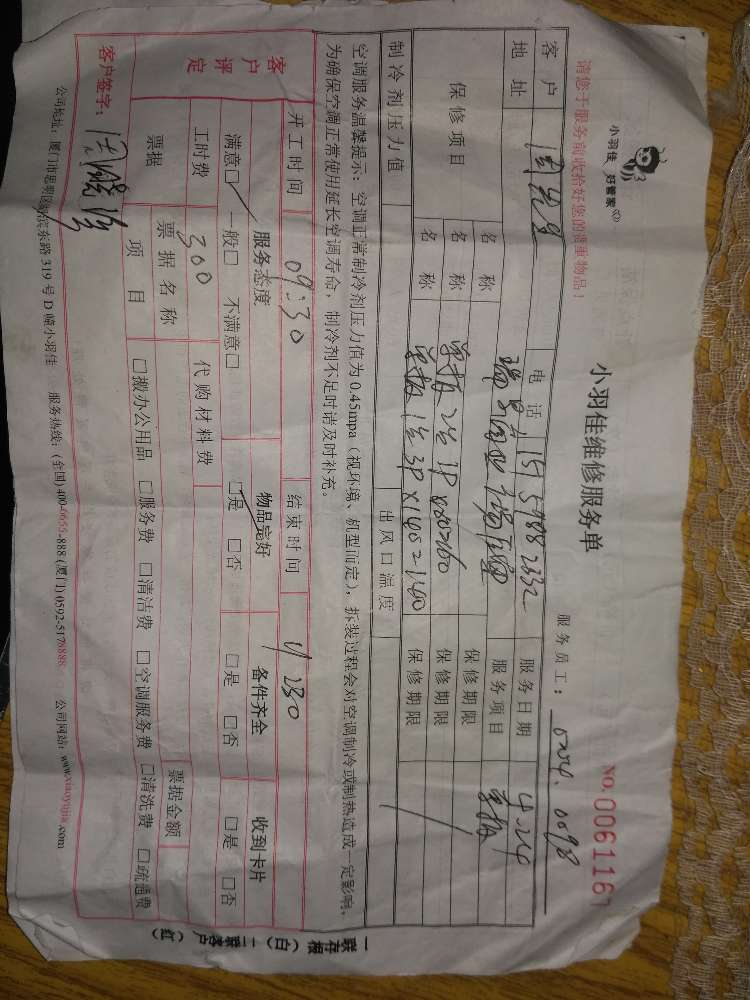 小羽佳 好管家
小羽佳维修服务单
NO.0061161
请您于服务前收拾好您的贵重物品!
服务员工: 0098
客户 周先生 电话 服务日期 4.24
地址 服务项目
保修项目 名称 保修期限
名称 单拆2台1P 保修期限
名称 单拆1台3P 保修期限
制冷剂压力值 出风口温度
空调服务温馨提示:空调正常制冷剂压力值为0.45mpa(视环境、机型而定),拆装过程会对空调制冷或制热造成一定影响,
为确保空调正常使用延长空调寿命,制冷剂不足时请及时补充。
开工时间 09:30 结束时间 11:30
客户评定 服务态度 物品完好 备件齐全 收到卡片
满意□ 一般□ 不满意□ □是 □否 □是 □否 □是 □否
工时费 300 代购材料费
票据 票据名称 票据金额
项目 □搬办公用品 □服务费 □清洁费 □空调服务费 □清洗费 □疏通费
客户签字:
公司地址:厦门市思明区 东路319号D幢小羽佳 服务热线:(全国)400-6655-888(厦门)0592-5178888 公司网站:www.xiaoyujia.com
一联存根(白)二联客户(红)